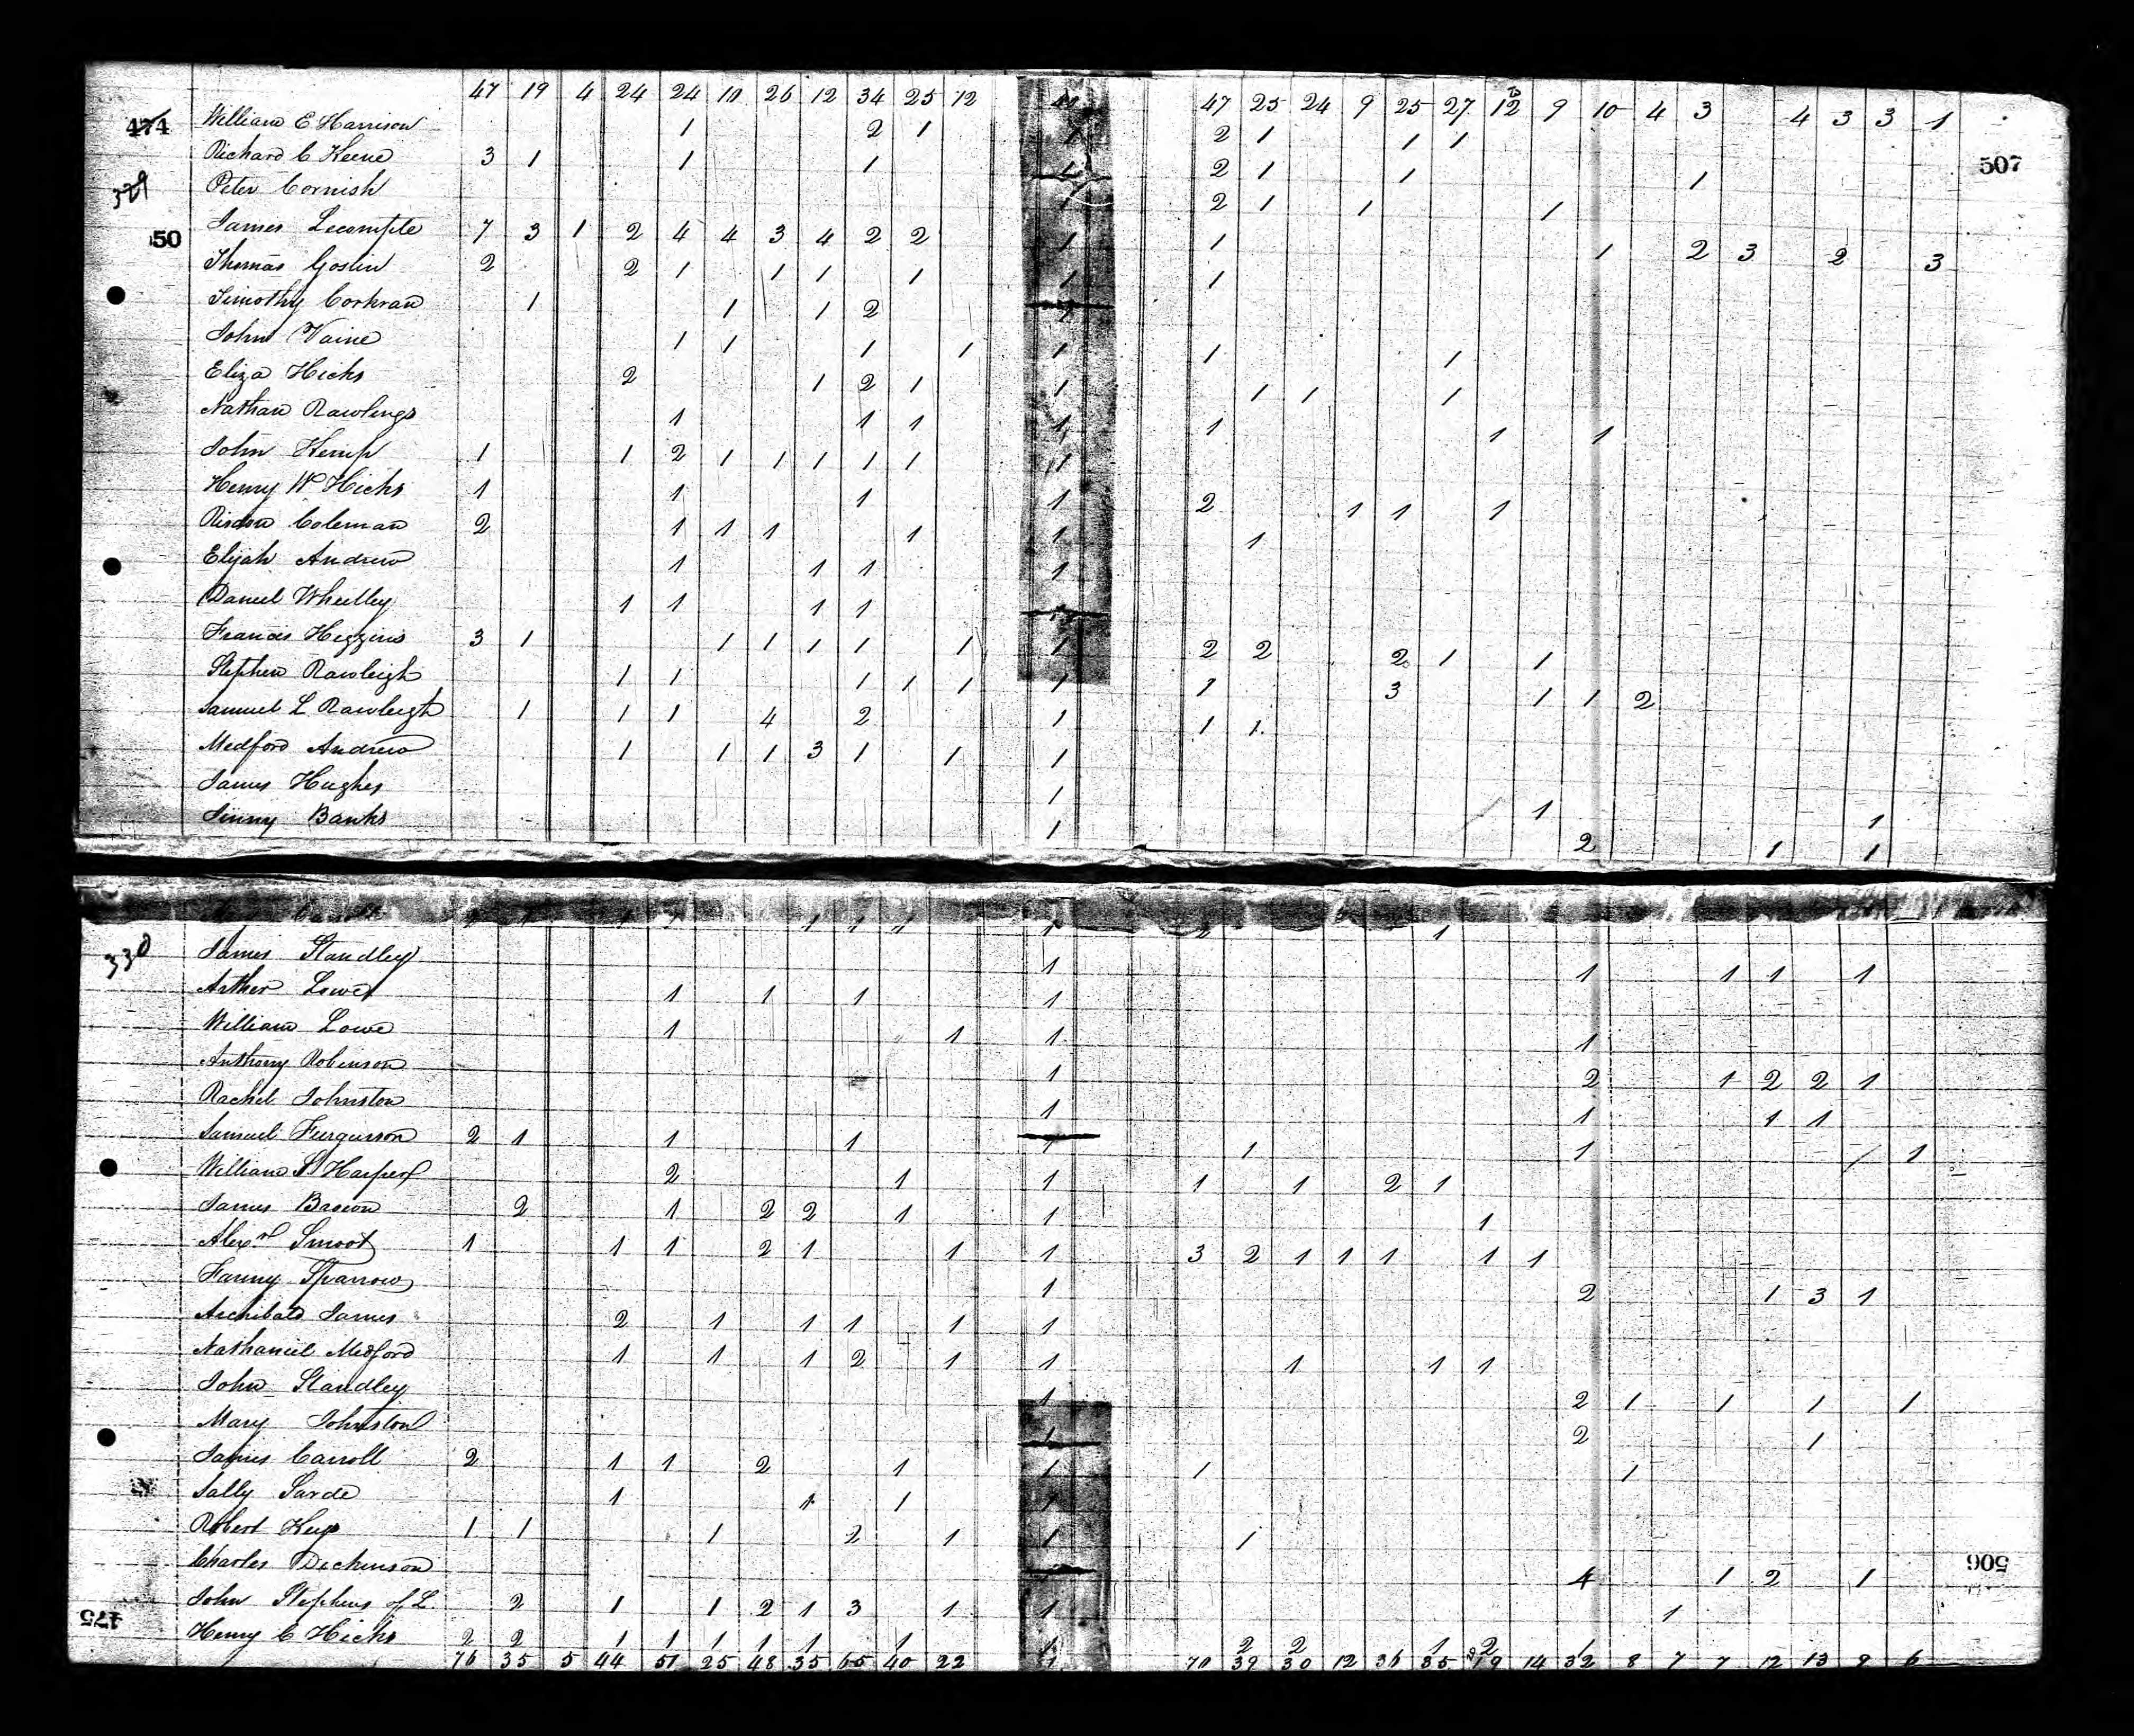 47 19 4 24 24 10 26 12 34 25 12 47 25 24 9 25 27 12 9 10 4 3 4 3 3 1
474 William E Harrison 1 2 1 1 2 1 1 1
507
Richard C Keene 3 1 1 1 1 2 1 1 1
329 Peter Cornish 1 2 1 1 1
50 James Lecompte 7 3 1 2 4 4 3 4 2 2 1 1 1 2 3 2 3
Thomas Goslin 2 2 1 1 1 1 1 1
Timothy Corkran 1 1 1 2 1
John Vaine 1 1 1 1 1 1 1
Eliza Hicks 2 1 2 1 1 1 1 1
Nathan Rawlings 1 1 1 1 1 1 1
John Kemp 1 1 2 1 1 1 1 1 1
Henry W Hicks 1 1 1 1 2 1 1 1
Risdon Coleman 2 1 1 1 1 1 1
Elijah Andrew 1 1 1 1
Daniel Wheelley 1 1 1 1
Francis Higgins 3 1 1 1 1 1 1 1 2 2 2 1 1
Stephen Rawleigh 1 1 1 1 1 1 1 3 1 1 2
Samuel L Rawleigh 1 1 1 4 2 1 1 1
Medford Andrew 1 1 1 3 1 1 1
James Hughes 1 1 1
Jinny Banks 1 2 1 1
330 James Standley 1 1 1 1 1
Arther Lowe 1 1 1 1
William Lowe 1 1 1 1
Anthony Robinson 1 2 1 2 2 1
Rachel Johnston 1 1 1 1
Samuel Fergusson 2 1 1 1 1 1 1 1
William S Harper 2 1 1 1 1 2 1
James Brown 2 1 2 2 1 1 1
Alexr Smoot 1 1 1 2 1 1 1 3 2 1 1 1 1 1
Fanny Sparrow 1 2 1 3 1
Archibald James 2 1 1 1 1 1
Nathaniel Medford 1 1 1 2 1 1 1 1 1
John Standley 1 2 1 1 1 1
Mary Johnston 1 2 1
James Carroll 2 1 1 2 1 1 1 1
Sally Sarde 1 1 1 1
Robert Keys 1 1 1 2 1 1 1
Charles Dickinson 4 1 2 1
506
John Stephens of L 2 1 1 2 1 3 1 1 1
475 Henry C Hicks 2 2 1 1 1 1 1 1 1 2 2 1 2 1
76 35 5 44 51 25 48 35 65 40 22 70 39 30 12 36 35 19 14 32 8 7 7 12 13 9 6